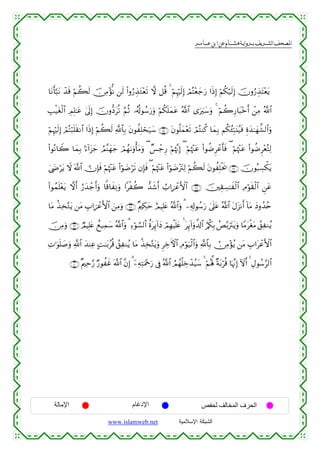 المصحف الشريف برواية هشام عن ابن عامر
يَعْتَذِرُونَ إِلَيْكُمْ إِذَا رَجَعْتُمْ إِلَيْهِمْ قُل لَّا تَعْتَذِرُوا۟ لَن نُّؤْمِنَ لَكُمْ قَدْ نَبَّأَنَا
ٱللَّهُ مِنْ أَخْبَارِكُمْ وَسَيَرَى ٱللَّهُ عَمَلَكُمْ وَرَسُولُهُۥ ثُمَّ تُرَدُّونَ إِلَىٰ عَٰلِمِ ٱلْغَيْبِ
وَٱلشَّهَٰدَةِ فَيُنَبِّئُكُم بِمَا كُنتُمْ تَعْمَلُونَ سَيَحْلِفُونَ بِٱللَّهِ لَكُمْ إِذَا ٱنقَلَبْتُمْ إِلَيْهِمْ
لِتُعْرِضُوا۟ عَنْهُمْ فَأَعْرِضُوا۟ عَنْهُمْ إِنَّهُمْ رِجْسٌ وَمَأْوَىٰهُمْ جَهَنَّمُ جَزَآءًۢ بِمَا كَانُوا۟
يَكْسِبُونَ يَحْلِفُونَ لَكُمْ لِتَرْضَوْا۟ عَنْهُمْ فَإِن تَرْضَوْا۟ عَنْهُمْ فَإِنَّ ٱللَّهَ لَا يَرْضَىٰ
عَنِ ٱلْقَوْمِ ٱلْفَٰسِقِينَ ٱلْأَعْرَابُ أَشَدُّ كُفْرًا وَنِفَاقًا وَأَجْدَرُ أَلَّا يَعْلَمُوا۟
حُدُودَ مَآ أَنزَلَ ٱللَّهُ عَلَىٰ رَسُولِهِۦ وَٱللَّهُ عَلِيمٌ حَكِيمٌ وَمِنَ ٱلْأَعْرَابِ مَن يَتَّخِذُ مَا
يُنفِقُ مَغْرَمًا وَيَتَرَبَّصُ بِكُمُ ٱلدَّوَآئِرَ عَلَيْهِمْ دَآئِرَةُ ٱلسَّوْءِ وَٱللَّهُ سَمِيعٌ عَلِيمٌ وَمِنَ
ٱلْأَعْرَابِ مَن يُؤْمِنُ بِٱللَّهِ وَٱلْيَوْمِ ٱلْءَاخِرِ وَيَتَّخِذُ مَا يُنفِقُ قُرُبَٰتٍ عِندَ ٱللَّهِ وَصَلَوَٰتِ
ٱلرَّسُولِ أَلَآ إِنَّهَا قُرْبَةٌ لَّهُمْ سَيُدْخِلُهُمُ ٱللَّهُ فِى رَحْمَتِهِۦٓ إِنَّ ٱللَّهَ غَفُورٌ رَّحِيمٌ
الحرف المخالف لحفص الإدغام الإمالة
الشبكة الإسلامية www.islamweb.net